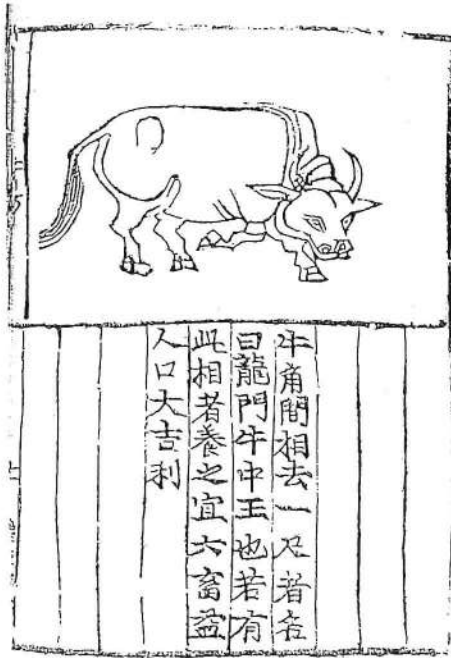 牛角間相去一尺者名
曰龍門牛中王也若有
此相者養之宜六畜益
人口大吉利